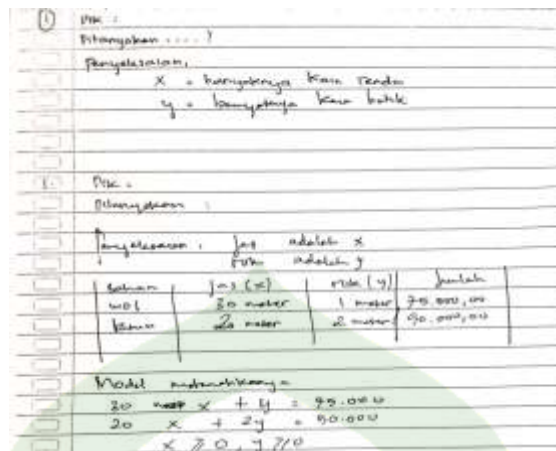 ① Dik :
Ditanyakan .... ?
Penyelesaian,
x = banyaknya kain renda
y = banyaknya kain batik
1. Dik :
Ditanyakan :
Penyelesaian : jas adalah x
rok adalah y
bahan jas (x) rok (y) Jumlah
wol 30 meter 1 meter 75.000,00
20 meter 2 meter 50.000,00
Model matematikanya =
30 x + y = 75.000
20 x + 2y = 50.000
x ≥ 0, y ≥ 0